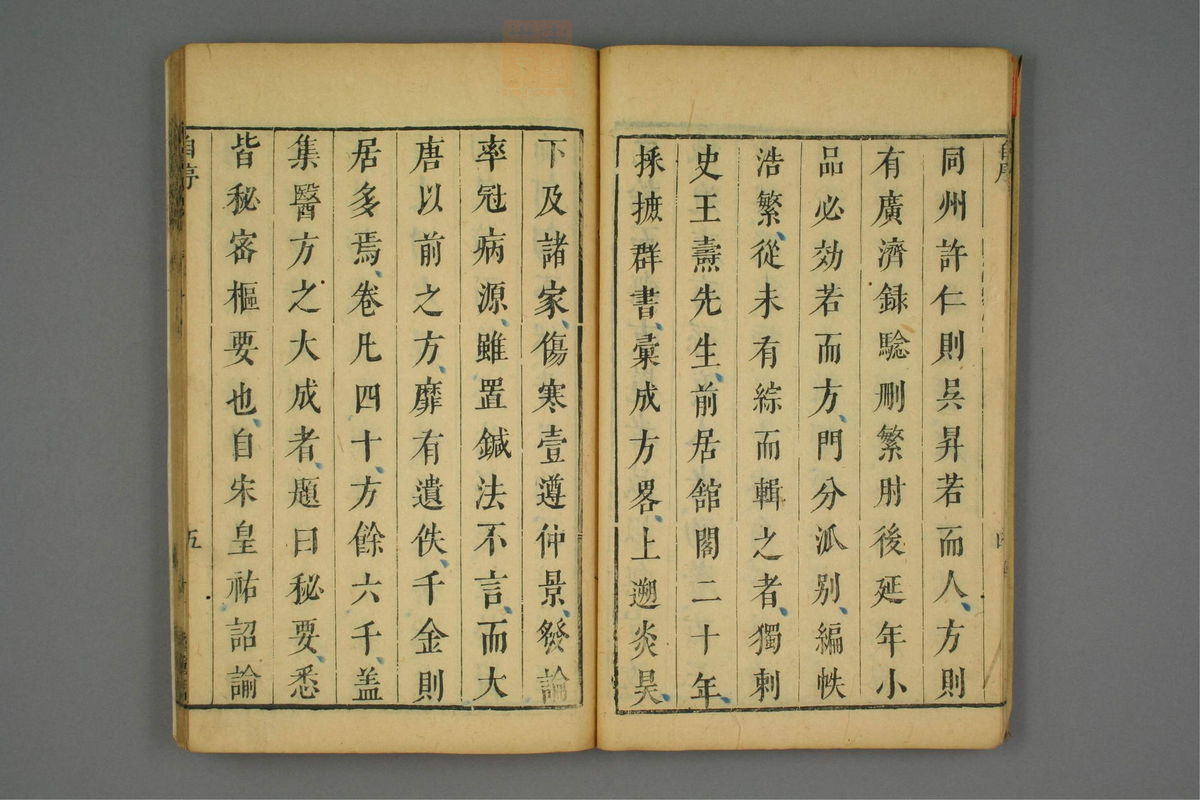 自序
同州許仁則呉昇若而人方則
有廣濟録驗刪繁肘後延年小
品必効若而方門分派别編帙
浩繁從未有綜而輯之者獨刺
史王燾先生前居舘閣二十年
採摭群書彙成方畧上遡炎昊
下及諸家傷寒壹遵仲景發論
率冠病源雖置鍼法不言而大
唐以前之方靡有遺佚千金則
居多焉卷凡四十方餘六千盖
集醫方之大成者題曰秘要悉
皆秘密樞要也自宋皇祐詔諭
自序
五